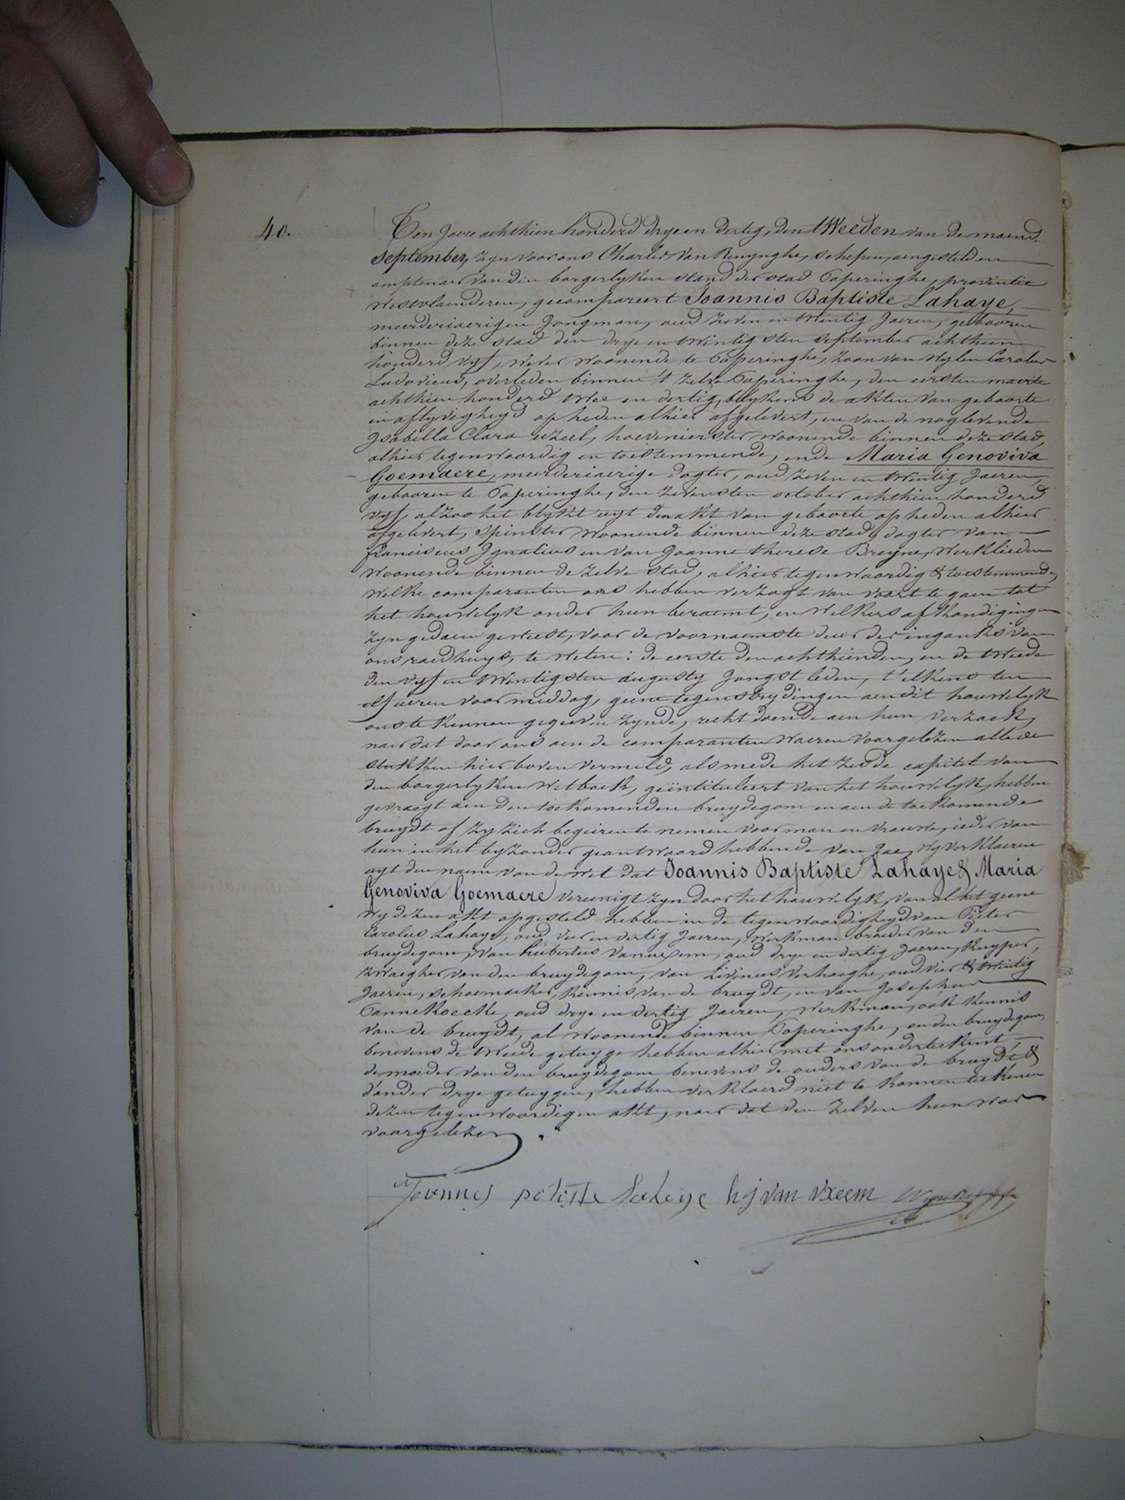 40.
Ten jaere achthien honderd drye en dertig, den tweeden van de maend
September, zyn voor ons Charles van Renynghe, schepen, aengestelden
amptenaer van den borgerlyken stand der stad Poperinghe, provintie
Westvlaenderen, gecompareert Joannis Baptiste Lahaye,
meerderjaerigen jongman, oud zeven en twintig jaeren, gebooren
binnen deze stad den drye en twintigsten september achthien
honderd vyf, wever woonende te Poperinghe, zoon van wylen Carolus
Ludovicus, overleden binnen 't zelve Poperinghe, den eersten maerte
achthien honderd twee en dertig, blykens de akten van geboorte
en aflyvigheyd op heden alhier afgelevert, en van de noglevende
Isabella Clara hovenierster woonende binnen deze stad,
alhier tegenwoordig en toestemmende, ende Maria Genoviva
Goemaere, meerderjaerige dogter, oud zeven en twintig jaeren,
gebooren te Poperinghe, den zevensten october achthien honderd
vyf, alzoo het blykt uyt den akt van geboorte op heden alhier
afgelevert, spinster woonende binnen deze stad, dogter van
Franciscus Ignatius en van Joanne Therese Breyne, werklieden
woonende binnen de zelve stad, alhier tegenwoordig & toestemmende,
welke comparanten ons hebben verzogt van voort te gaen tot
het houwelyk onder hun beraemt, en welkers afkondigingen
zyn gedaen geweest, voor de voornaemste deur der ingank van
ons raedhuys, te weten: de eerste den achthienden, en de tweede
den vyf en twintigsten augusty jongstleden, t'elkens ten
elf ueren voormiddag, geene tegenstrydingen aen dit houwelyk
ons te kennen gegeven zynde, recht doende aen hun verzoek,
naer dat door ons aen de comparanten waeren voorgelezen alle de
stukken hier boven vermeld, als mede het zesde capitel van
den borgerlyken wetboek, geïntituleert van het houwelyk, hebben
gevraegt aen den toekomenden bruydegom en aen de toekomende
bruydt of zy zich begeiren te nemen voor man en vrouwe, ieder van
hun in het byzonder geantwoord hebbende van jae, wy verklaeren
uyt den naem van de wet dat Joannis Baptiste Lahaye & Maria
Genoviva Goemaere vereenigt zyn door het houwelyk, van al het geene
wy dezen akt opgesteld hebben in de tegenwoordigheyd van Pieter
Carolus Lahaye, oud vier en dertig jaeren, werkman broeder van den
bruydegom, van Hubertus oud drye en dertig jaeren, kuyper,
zwaegher van den bruydegom, van Livinus Verhaeghe, oud vier & twintig
jaeren, schoemaeker, kennis van de bruydt, en van Josephus
Cannekoecke, oud drye en dertig jaeren, werkman, ook kennis
van de bruydt, al woonende binnen Poperinghe, en den bruydegom
benevens de tweede getuyge hebben alhier met ons onderteekent,
de moeder van den bruydegom benevens de ouders van de bruydt &
d'ander drye getuygen, hebben verklaerd niet te konnen teekenen
dezen tegenwoordigen akt, naer dat den zelven hun was
voorgelezen.
Joannes Lahaye hj van vxeem